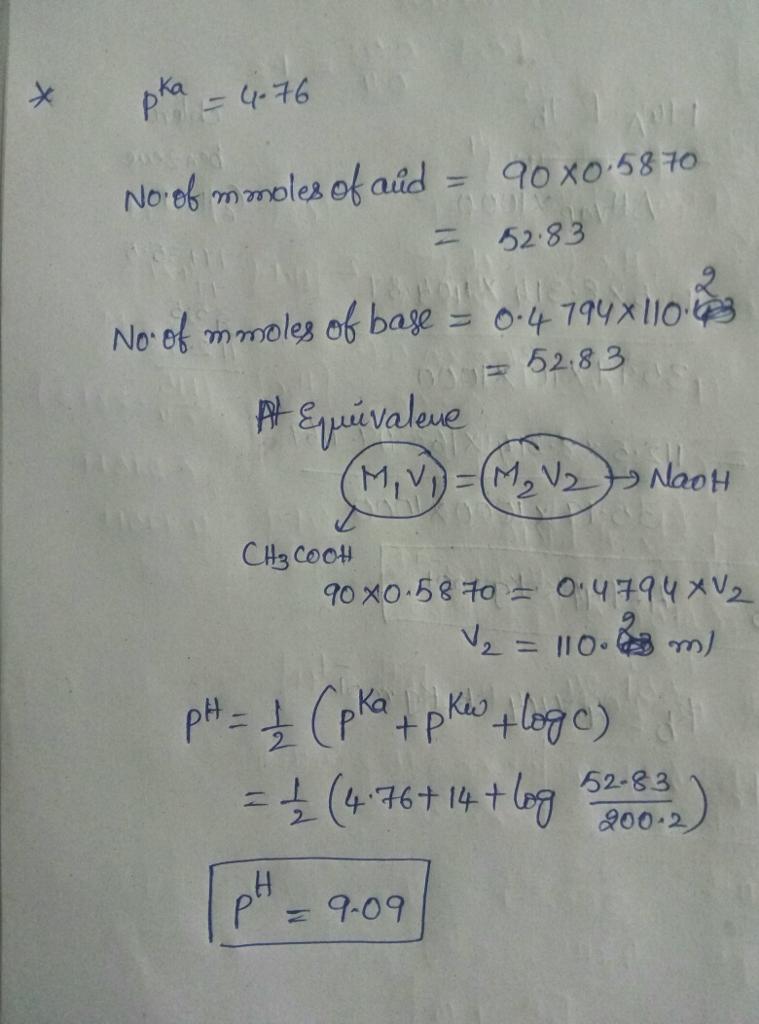 * pKa = 4.76
No. of mmoles of acid = 90 x 0.5870
= 52.83
No. of mmoles of base = 0.4794 x 110.2
= 52.83
At Equivalene
M₁V₁ = M₂V₂ → NaOH
CH3COOH
90 x 0.5870 = 0.4794 x V₂
V₂ = 110.2 ml
pH = 1/2 (pKa + pKw + log c)
= 1/2 (4.76 + 14 + log 52.83/200.2)
pH = 9.09